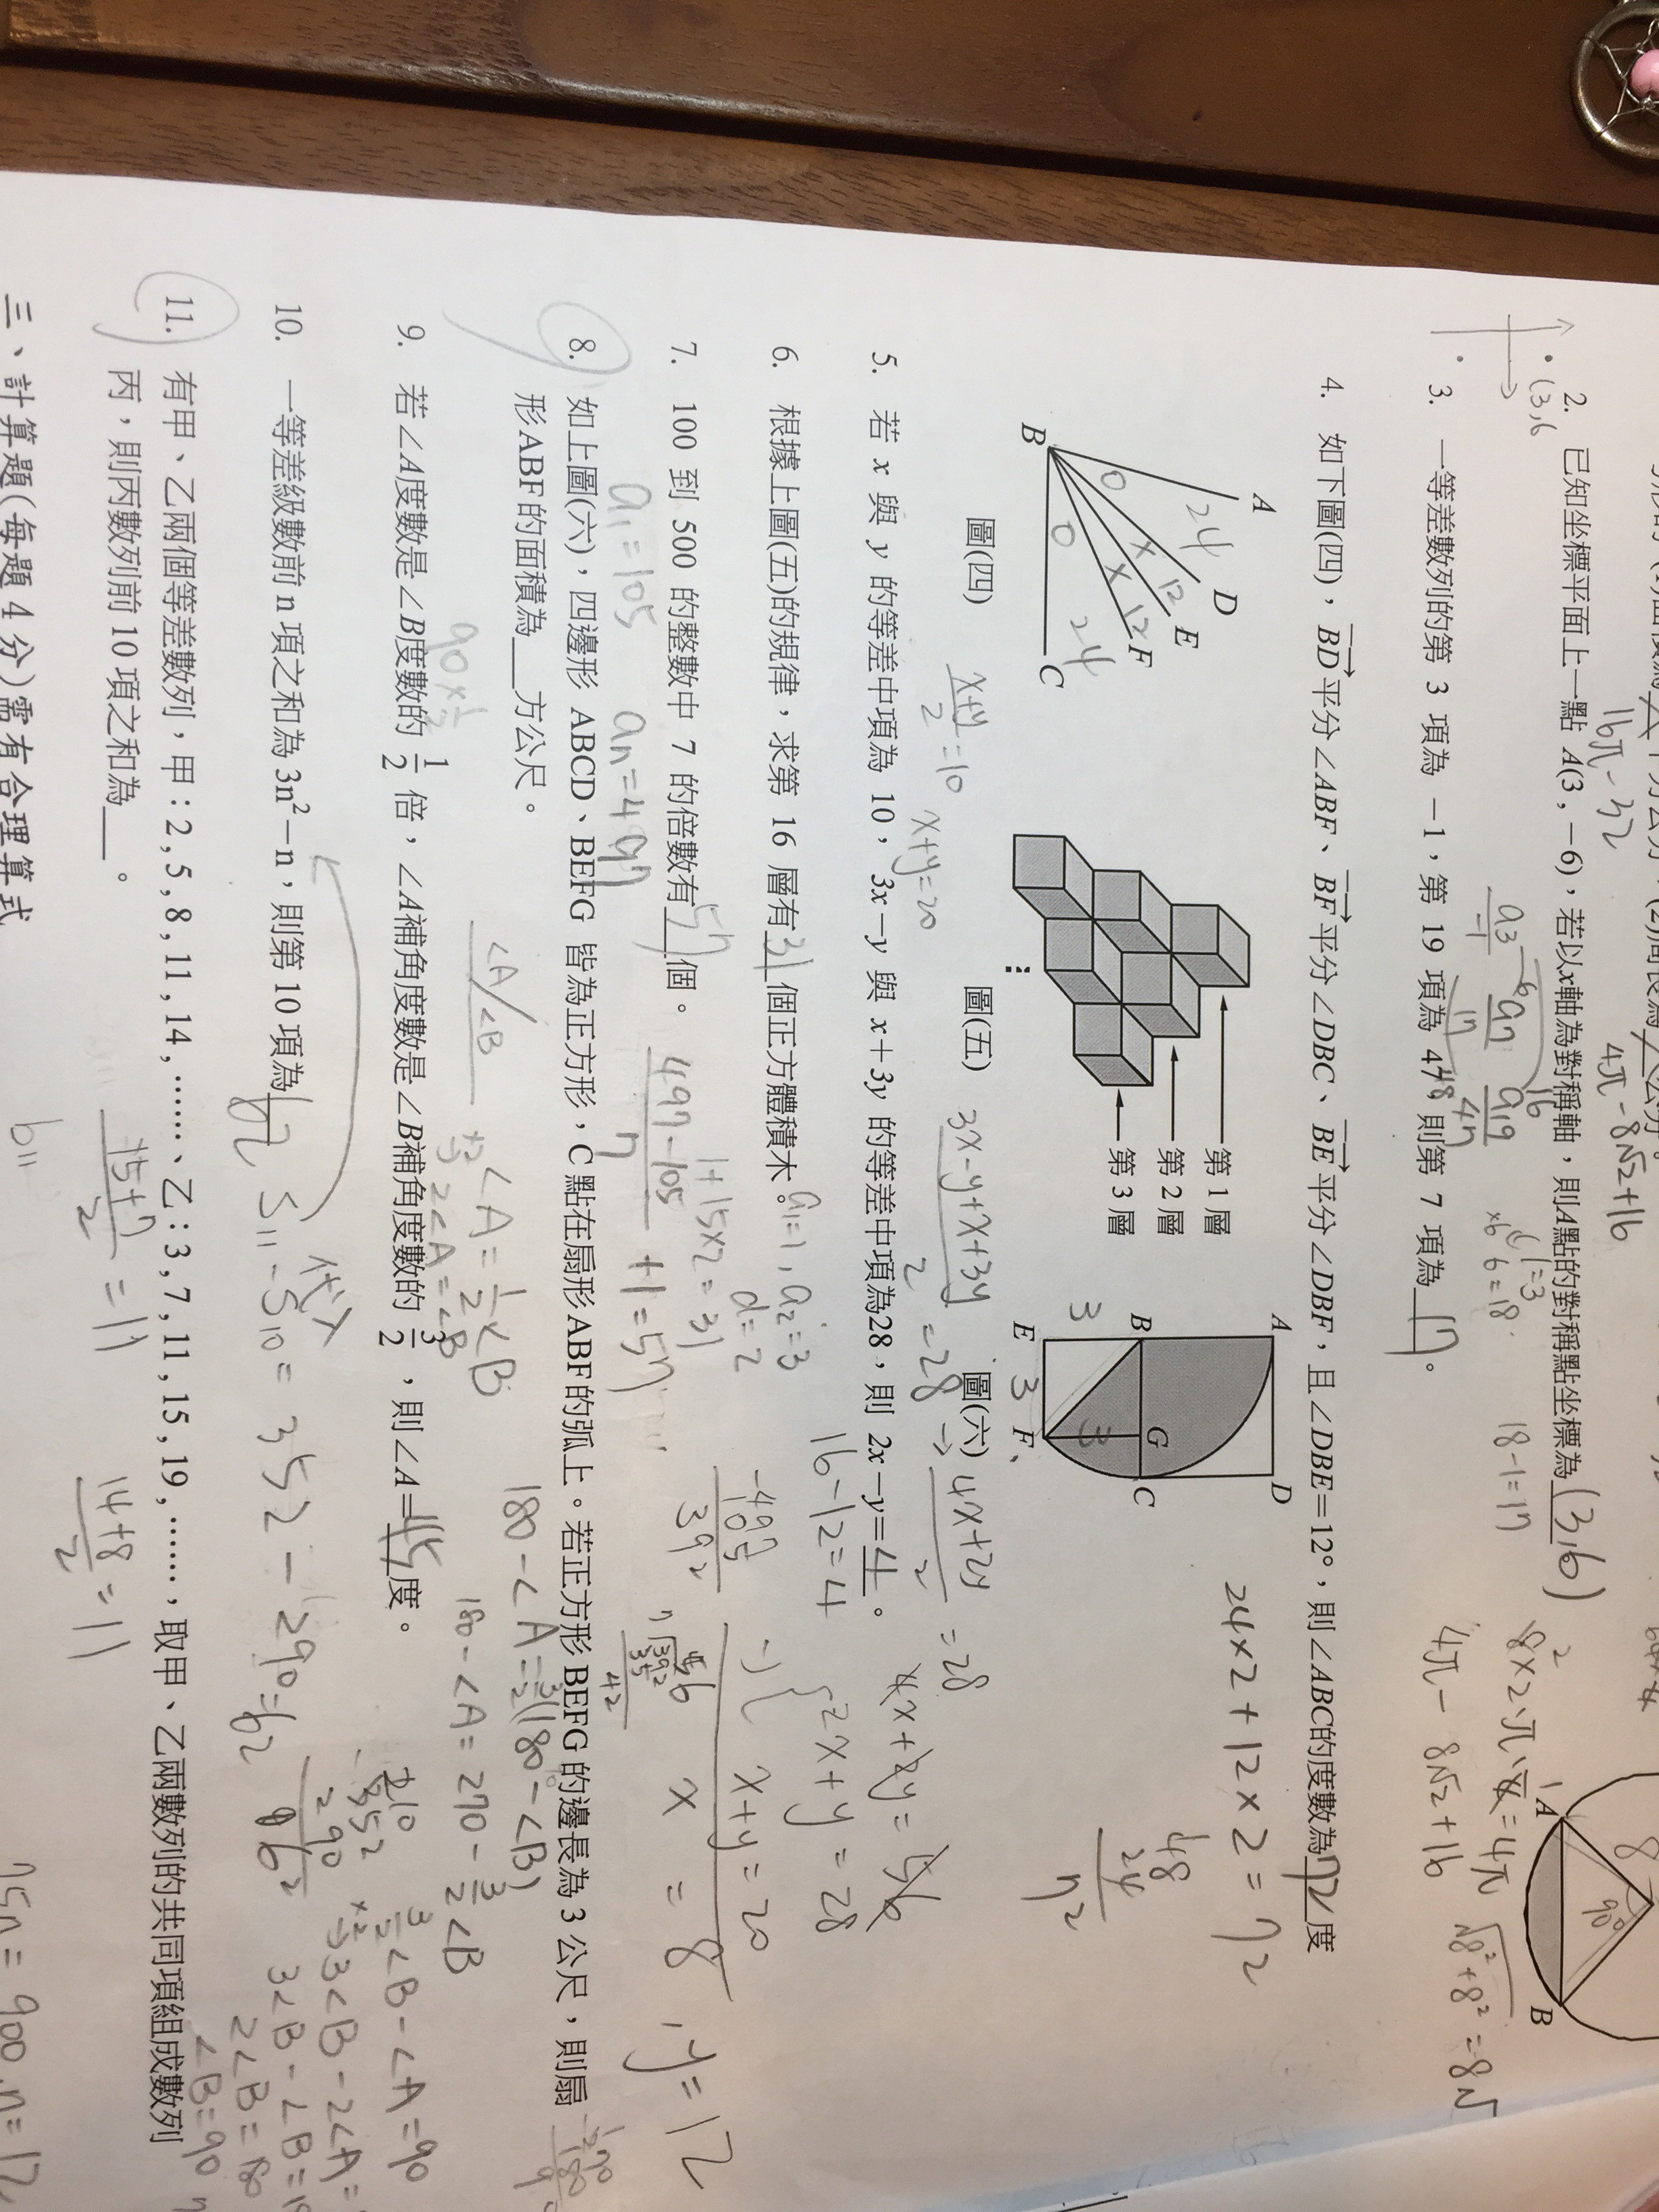 2. 已知坐標平面上一點 A(3,-6)，若以x軸為對稱軸，則A點的對稱點坐標為(3,6)
(3,6
16π-32
4π-8√2+16
3. 一等差數列的第 3 項為 -1，第 19 項為 47，則第 7 項為17。
18-1=17
8×2×π×
4π-8√2+16
4. 如下圖(四)，BD平分∠ABF、BF平分∠DBC、BE平分∠DBF，且∠DBE=12°，則∠ABC的度數為72度
24×2+12×2=72
48
24
72
A
D
E
F
C
B
24
12
12
24
圖(四)
第 1 層
第 2 層
第 3 層
圖(五)
A
D
B
G
C
E
F
3
3
3
圖(六)
A
B
8
90°
x+y/2=10
x+y=20
3x-y+x+3y/2=28
4x+2y/2=28
5. 若 x 與 y 的等差中項為 10，3x-y 與 x+3y 的等差中項為28，則 2x-y=4。
16-12=4
2x+y=28
x+y=20
x=8
,y=12
6. 根據上圖(五)的規律，求第 16 層有31個正方體積木。
a1=1,a2=3
d=2
1+15×2=31
7. 100 到 500 的整數中 7 的倍數有57個。
a1=105
an=497
497-105/7+1=57
392
8. 如上圖(六)，四邊形 ABCD、BEFG 皆為正方形，C 點在扇形ABF的弧上。若正方形BEFG的邊長為 3 公尺，則扇
形ABF的面積為　方公尺。
9. 若∠A度數是∠B度數的 1/2 倍，∠A補角度數是∠B補角度數的 3/2，則∠A=45度。
∠A=1/2×∠B
2∠A=∠B
180-∠A=3/2(180-∠B)
180-∠A=270-3/2∠B
3/2∠B-∠A=90
10. 一等差級數前 n 項之和為 3n²-n，則第 10 項為62
代入
S11-S10=352-290=62
2∠B=180
∠B=90
11. 有甲、乙兩個等差數列，甲：2,5,8,11,14,……、乙：3,7,11,15,19,……，取甲、乙兩數列的共同項組成數列
丙，則丙數列前 10 項之和為　。
15+7/2=11
14+8/2=11
三、計算題(每題 4 分)需有合理算式